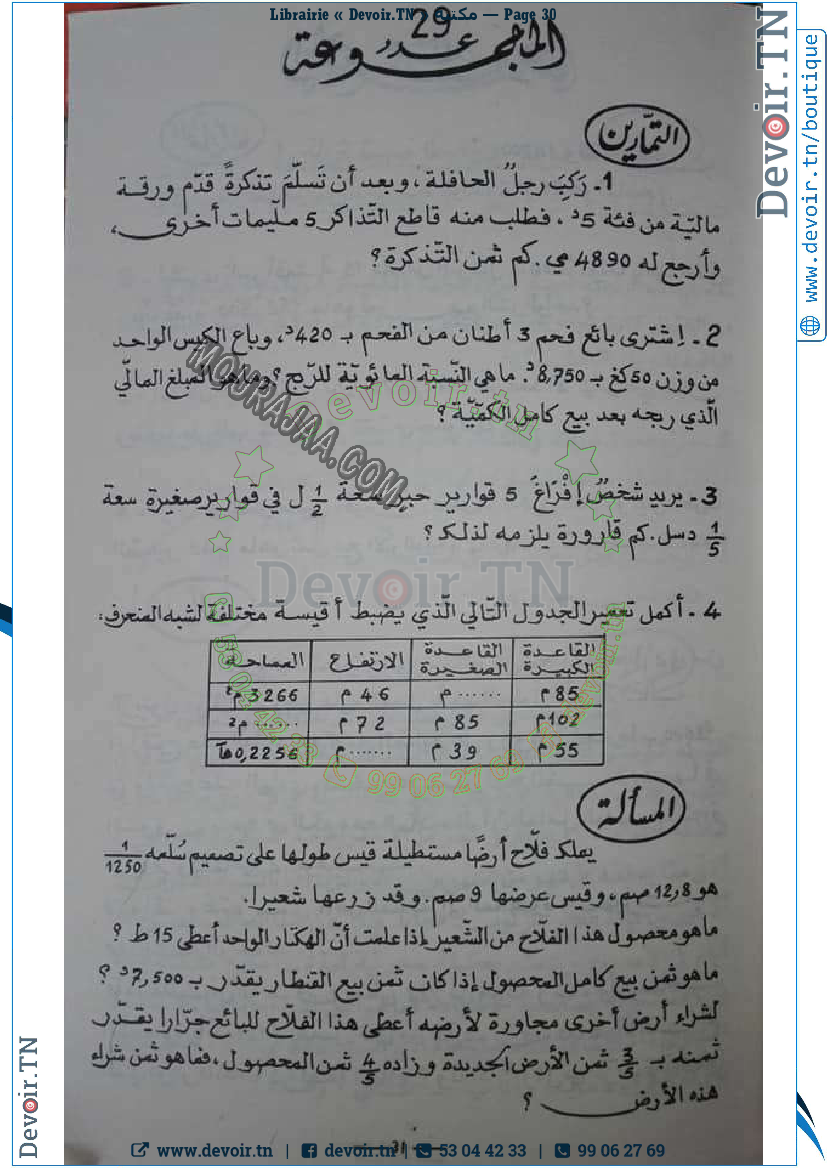 Librairie « Devoir.TN » مكتبة — Page 30
المجموعة عدد 29
التمارين
1- رَكِبَ رجلٌ الحافلة، وبعد أن تَسلّمَ تذكرةً قدّم ورقة
ماليّة من فئة 5د، فطلب منه قاطع التّذاكر 5 ملّيمات أخرى،
وأرجع له 4890 مي. كم ثمن التّذكرة؟
2- اِشترى بائع فحم 3 أطنان من الفحم بـ 420د، وباع الكيس الواحد
من وزن 50 كغ بـ 8,750د. ما هي النّسبة المائويّة للرّبح؟ وما هو المبلغ المالّي
الّذي ربحه بعد بيع كامل الكمّيّة؟
3- يريد شخصٌ إفْرَاغَ 5 قوارير حبر سعة 1/2 ل في قوارير صغيرة سعة
1/5 دسل. كم قارورة يلزمه لذلك؟
4- أكمل تعمير الجدول التّالي الّذي يضبط أقيسة مختلفة لشبه المنحرف:
القاعدة الكبيرة | القاعدة الصغيرة | الارتفاع | المساحة
85 م | ...... م | 46 م | 3266 م2
102 م | 85 م | 72 م | ...... م2
55 م | 39 م | ...... م | 0,2256 هآ
المسألة
يملك فلّاح أرضًا مستطيلة قيس طولها على تصميم سُلّمه 1/1250
هو 12,8 صم، وقيس عرضها 9 صم. وقد زرعها شعيرا.
ما هو محصول هذا الفلّاح من الشّعير إذا علمت أنّ الهكتار الواحد أعطى 15 ط؟
ما هو ثمن بيع كامل المحصول إذا كان ثمن بيع القنطار يقدّر بـ 7,500د؟
لشراء أرض أخرى مجاورة لأرضه أعطى هذا الفلّاح للبائع جرّارا يقدّر
ثمنه بـ 3/5 ثمن الأرض الجديدة وزاده 4/5 ثمن المحصول، فما هو ثمن شراء
هذه الأرض؟
31
MOURAJAA.COM
devoir.tn
Devoir.TN
53 04 42 33
99 06 27 69
devoir.tn
Devoir.TN
www.devoir.tn/boutique
Devoir.TN
www.devoir.tn | devoir.tn | 53 04 42 33 | 99 06 27 69